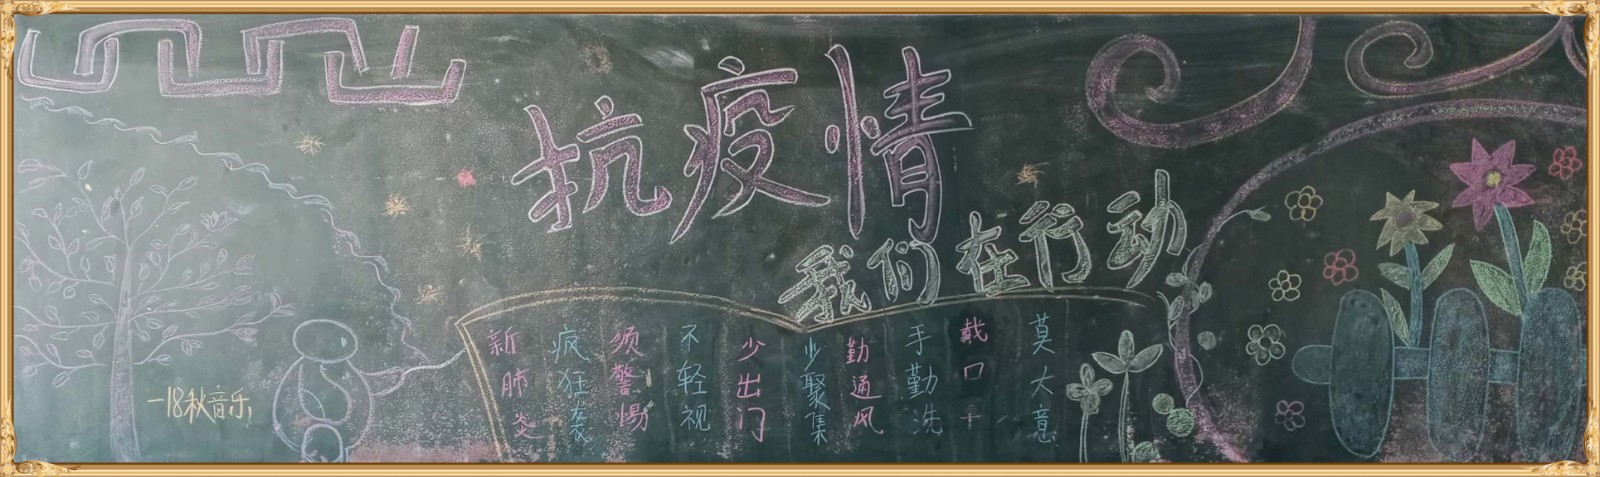 抗疫情
我们在行动
新肺炎
疯狂袭
须警惕
不轻视
少出门
少聚集
勤通风
手勤洗
戴口
莫大意
一18秋音乐